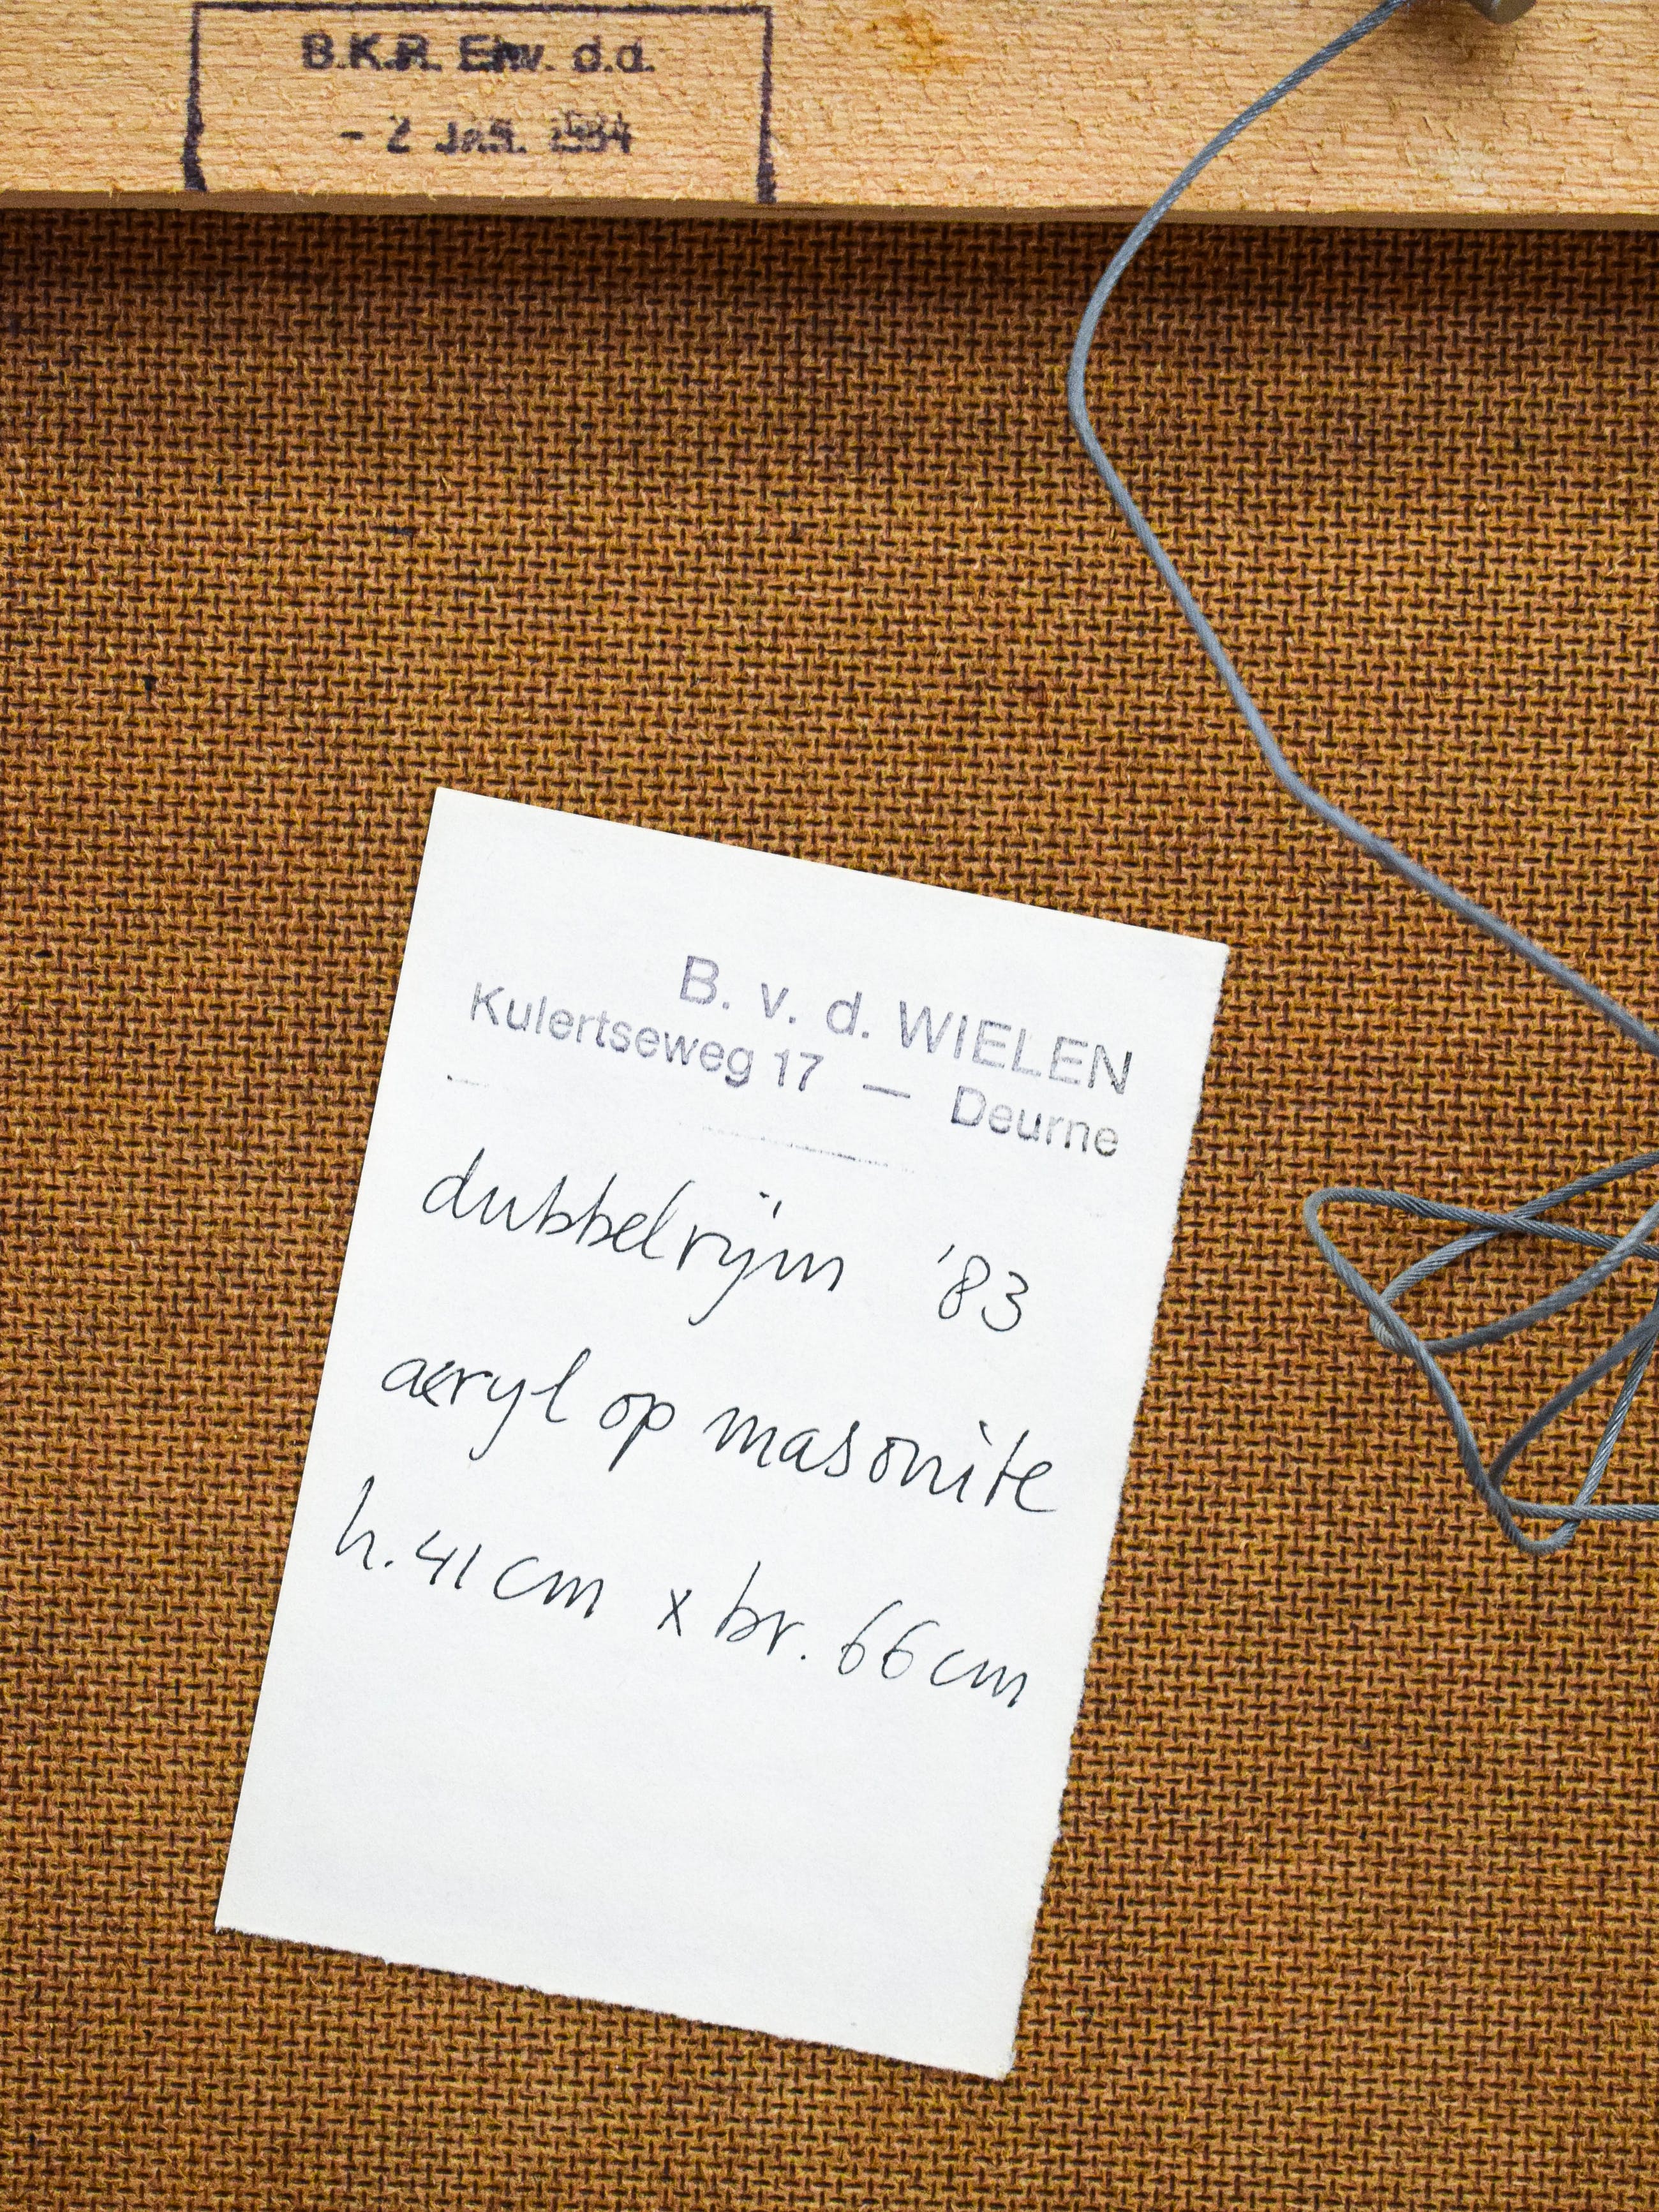 B.K.R. Env. d.d.
- 2 JAN. 1984
B. v. d. WIELEN
Kulertseweg 17 — Deurne
dubbelrijm '83
acryl op masonite
h. 41 cm x br. 66 cm